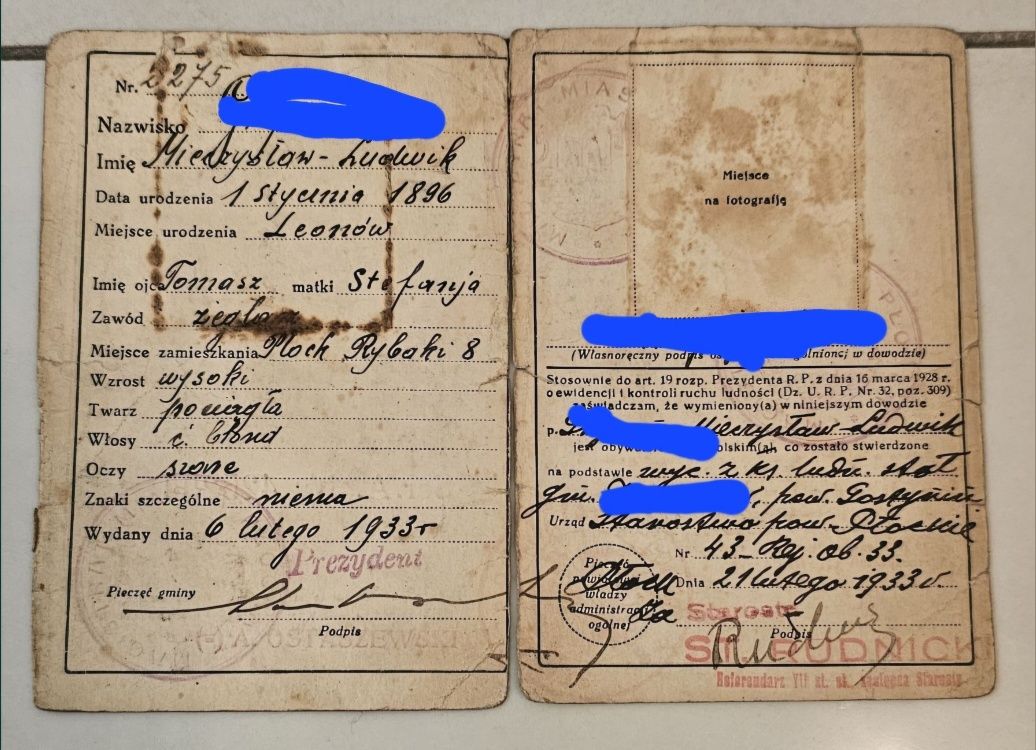 Nr. 2275
Nazwisko
Imię Mieczysław-Ludwik
Data urodzenia 1 stycznia 1896
Miejsce urodzenia Leonów
Imię ojca Tomasz matki Stefanja
Zawód żeglarz
Miejsce zamieszkania Płock Rybaki 8
Wzrost wysoki
Twarz pociągła
Włosy c. blond
Oczy szare
Znaki szczególne niema
Wydany dnia 6 lutego 1933r
Prezydent
Pieczęć gminy
Podpis
MIAS
Miejsce
na fotografję
PŁO
(Własnoręczny podpis
w dowodzie)
Stosownie do art. 19 rozp. Prezydenta R. P. z dnia 16 marca 1928 r.
o ewidencji i kontroli ruchu ludności (Dz. U. R. P. Nr. 32, poz. 309)
zaświadczam, że wymieniony(a) w niniejszym dowodzie
p. Mieczysław-Ludwik
jest co zostało stwierdzone
na podstawie wyc. z ks. ludn. stał
gm. pow. Gostynin
Urząd Starostwo pow. Płockie
Nr 43-Rej. ob. 33.
Pieczęć powiatowej władzy administracji ogólnej
Płock Dnia 21 lutego 1933 r.
za Starosta
Podpis
ST. RUDNICKI
Referendarz VII st. sł. zastępca Starosty